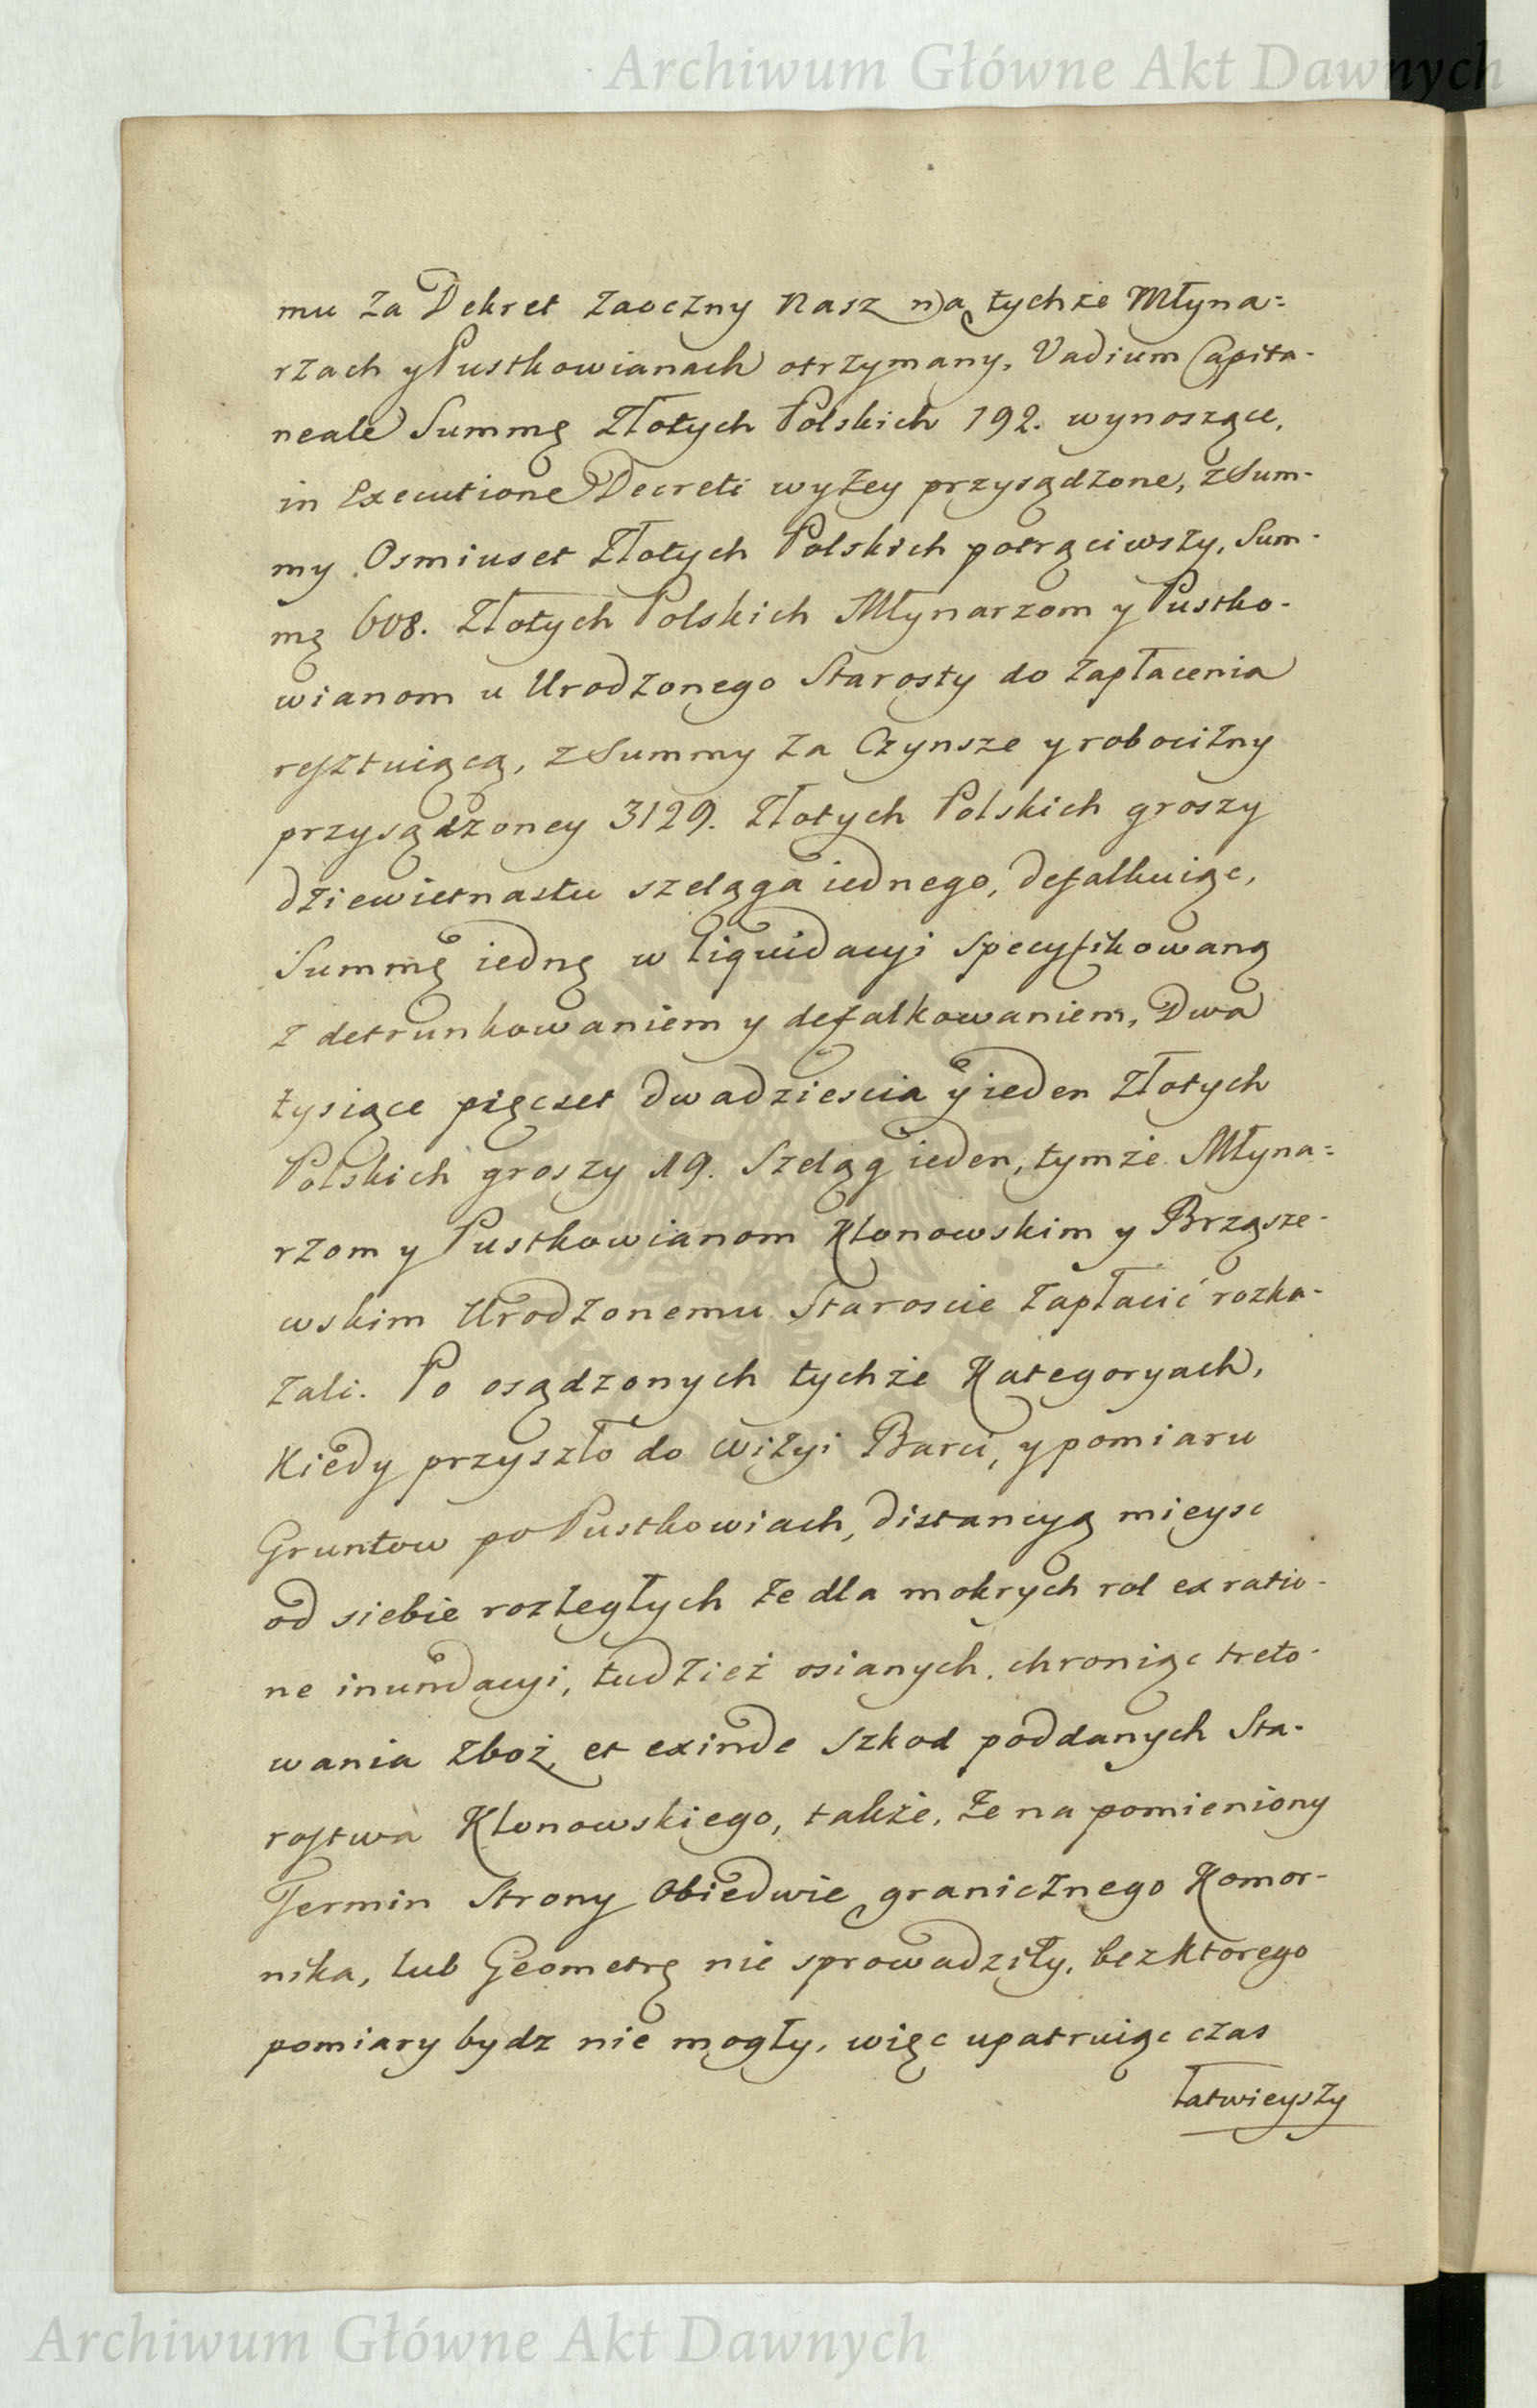 Archiwum Główne Akt Dawnych
mu za Dekret zaoczny Nasz na tychże Młyna=
rzach y Pustkowianach otrzymany, Vadium Capita-
neale Summę Złotych Polskich 192. wynoszące,
in Executione Decreti wyżey przysądzone, z Sum-
my Osmiuset Złotych Polskich potrąciwszy, Sum-
mę 608. Złotych Polskich Młynarzom y Pustko-
wianom u Urodzonego Starosty do zapłacenia
resztuiącą, z Summy za Czynsze y robocizny
przysądzoney 3129. Złotych Polskich groszy
dziewietnastu szeląga iednego, defalkuiąc,
Summę iednę w liquidacyi specyfikowaną
z detrunkowaniem y defalkowaniem, Dwa
tysiące pięcset dwadziescia y ieden Złotych
Polskich groszy 19. Szeląg ieden, tymże Młyna=
rzom y Pustkowianom Klonowskim y Brząsze-
wskim Urodzonemu Staroscie zapłacić rozka-
zali. Po osądzonych tychże Kategoryach,
Kiedy przyszło do wizyi Barci, y pomiaru
Gruntow po Pustkowiach, distancyą mieysc
od siebie rozległych że dla mokrych rol ex ratio-
ne inundacyi, tudzież osianych, chroniąc treto-
wania zboż, et exinde szkod poddanych Sta-
rostwa Klonowskiego, także, że na pomieniony
Termin Strony Obiedwie granicznego Komor-
nika, lub Geometrę nie sprowadziły, bez ktorego
pomiary bydz nie mogły, więc upatruiąc czas
łatwieyszy
Archiwum Główne Akt Dawnych